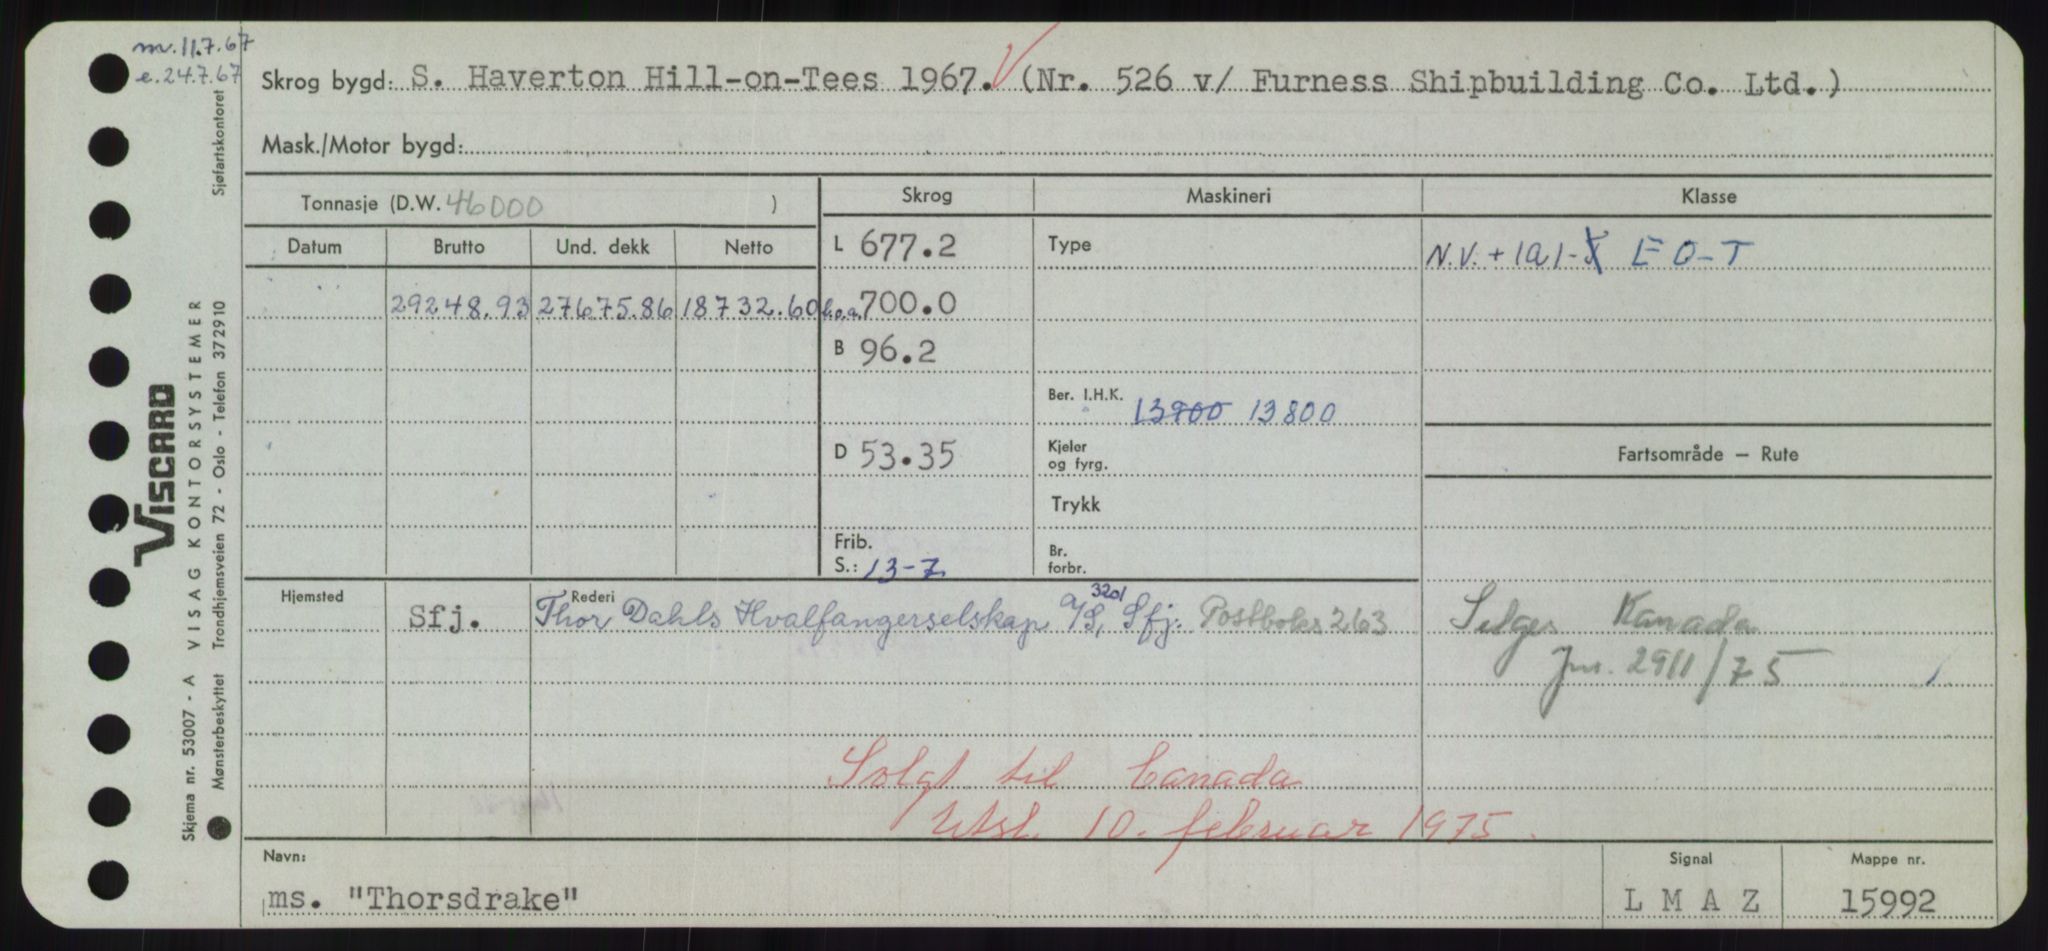 m. 11.7.67
e. 24.7.67
Skrog bygd: S. Haverton Hill-on-Tees 1967. (Nr. 526 v/ Furness Shipbuilding Co. Ltd.)
Mask./Motor bygd:
Tonnasje (D.W. 46000 )
Skrog Maskineri Klasse
Datum Brutto Und. dekk Netto
L 677.2 Type N.V. + 1A1- EO-T
29248.93 27675.86 18732.60 l.o.a. 700.0
B 96.2
Ber. I.H.K. 13900 13800
D 53.35 Kjeler og fyrg. Fartsområde – Rute
Trykk
Frib. S.: 13-7 Br. forbr.
Hjemsted Rederi
3201
Sfj. Thor Dahls Hvalfangerselskap A/S, Sfj. Postboks 263
Selges Kanada
jnr. 2911/75
Solgt til Canada
Utsl. 10. februar 1975.
Navn: Signal Mappe nr.
ms. "Thorsdrake" L M A Z 15992
VISCARD
VISAG KONTORSYSTEMER
Skjema nr. 53007 - A
Sjøfartskontoret
Mønsterbeskyttet Trondhjemsveien 72 - Oslo - Telefon 372910